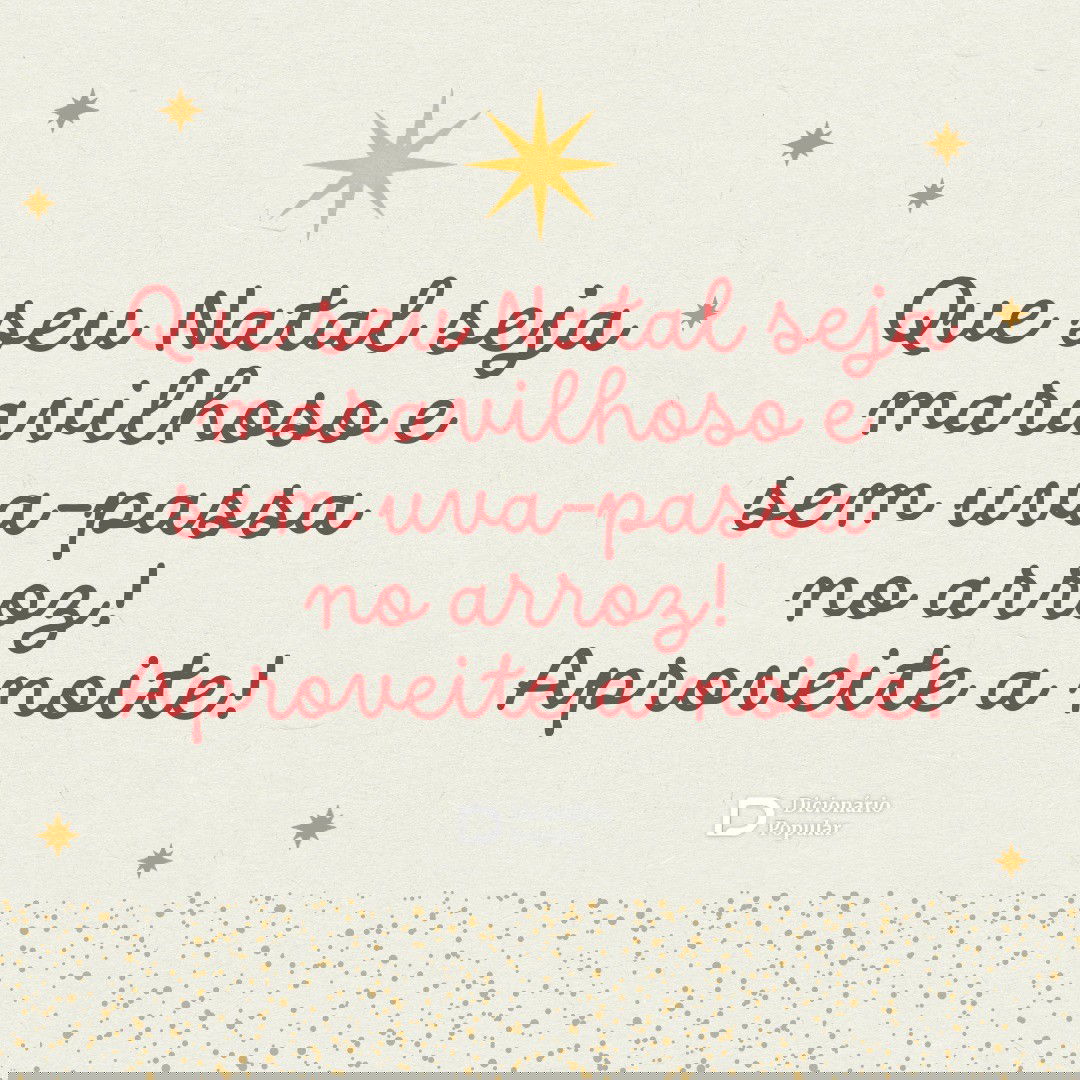 Que seu Natal seja
maravilhoso e
sem uva-passa
no arroz!
Aproveite a noite!
Dicionário
Popular